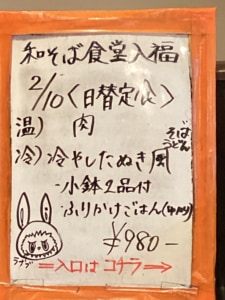 和そば食堂入福
2/10〈日替定食〉
温) 肉 そば
うどん
冷) 冷やしたぬき風
・小鉢2品付
・ふりかけごはん(中盛)
¥980-
⇒入口はコチラ⇒